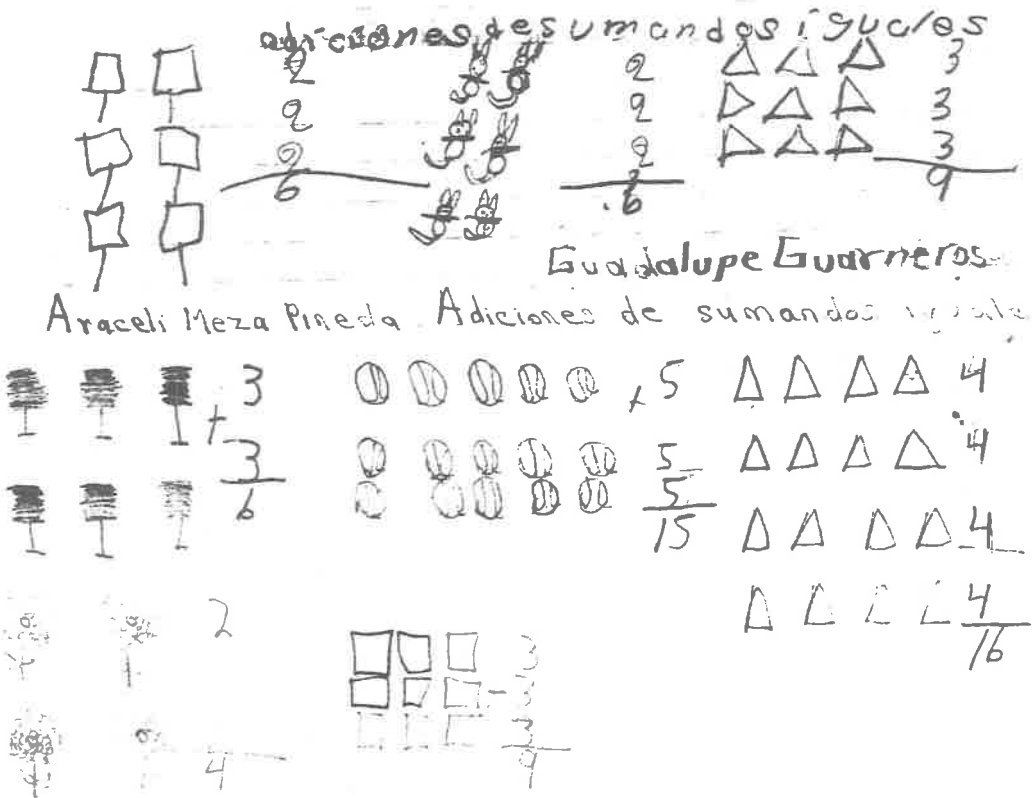 adiciones de sumandos iguales
2
2
2
6
2
2
2
6
3
3
3
9
Guadalupe Guarneros
Araceli Meza Pineda Adiciones de sumandos iguale
3
+
3
6
+ 5
5
5
15
4
4
4
4
16
2
4
3
3
3
9